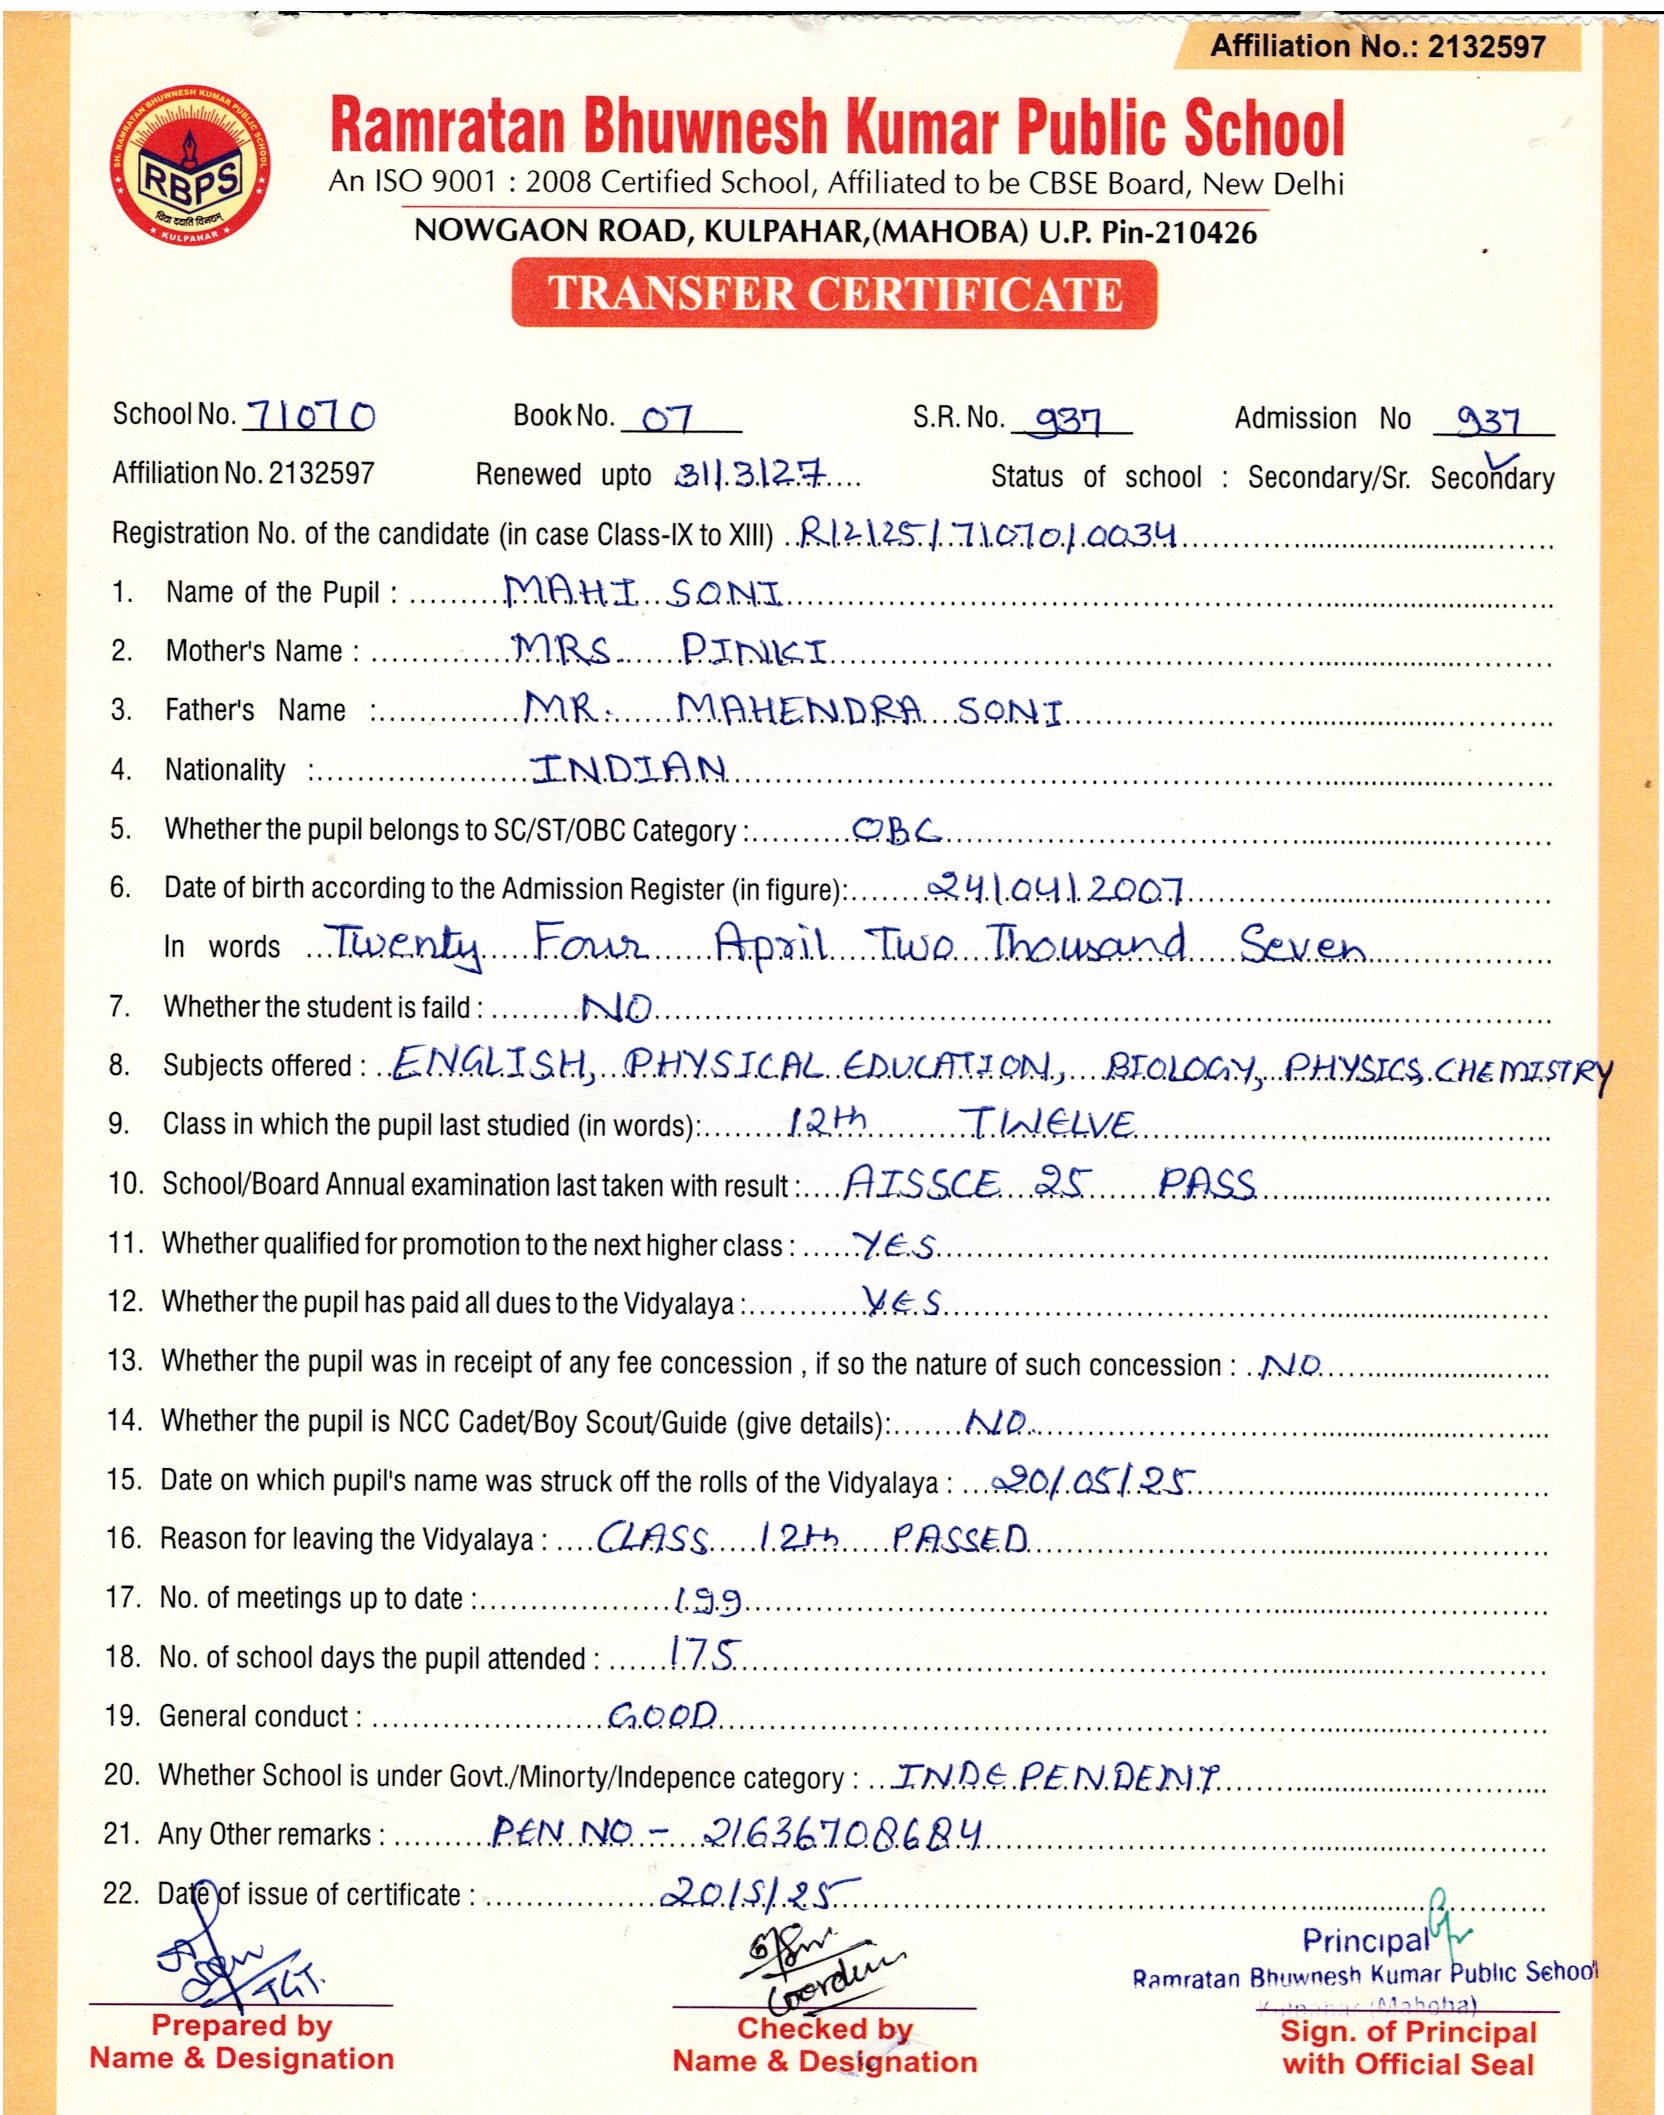 Affiliation No.: 2132597
SH. RAMRATAN BHUWNESH KUMAR PUBLIC SCHOOL
RBPS
विद्या ददाति विनयम्
KULPAHAR
Ramratan Bhuwnesh Kumar Public School
An ISO 9001 : 2008 Certified School, Affiliated to be CBSE Board, New Delhi
NOWGAON ROAD, KULPAHAR,(MAHOBA) U.P. Pin-210426
TRANSFER CERTIFICATE
School No. 71070 Book No. 07 S.R. No. 937 Admission No 937
Affiliation No. 2132597 Renewed upto 31/3/27 Status of school : Secondary/Sr. Secondary
Registration No. of the candidate (in case Class-IX to XIII) R12125/71070/0034
1. Name of the Pupil : MAHI SONI
2. Mother's Name : MRS. PINKI
3. Father's Name : MR. MAHENDRA SONI
4. Nationality : INDIAN
5. Whether the pupil belongs to SC/ST/OBC Category : OBC
6. Date of birth according to the Admission Register (in figure): 24/04/2007
In words Twenty Four April Two Thousand Seven
7. Whether the student is faild : NO
8. Subjects offered : ENGLISH, PHYSICAL EDUCATION, BIOLOGY, PHYSICS, CHEMISTRY
9. Class in which the pupil last studied (in words): 12th TWELVE
10. School/Board Annual examination last taken with result : AISSCE 25 PASS
11. Whether qualified for promotion to the next higher class : YES
12. Whether the pupil has paid all dues to the Vidyalaya : YES
13. Whether the pupil was in receipt of any fee concession , if so the nature of such concession : NO
14. Whether the pupil is NCC Cadet/Boy Scout/Guide (give details): NO
15. Date on which pupil's name was struck off the rolls of the Vidyalaya : 20/05/25
16. Reason for leaving the Vidyalaya : CLASS 12th PASSED
17. No. of meetings up to date : 199
18. No. of school days the pupil attended : 175
19. General conduct : GOOD
20. Whether School is under Govt./Minorty/Indepence category : INDEPENDENT
21. Any Other remarks : PEN NO - 21636708684
22. Date of issue of certificate : 20/5/25
TGT.
Principal
Ramratan Bhuwnesh Kumar Public School
Kulpahar (Mahoba)
Prepared by
Name & Designation
Checked by
Name & Designation
Sign. of Principal
with Official Seal